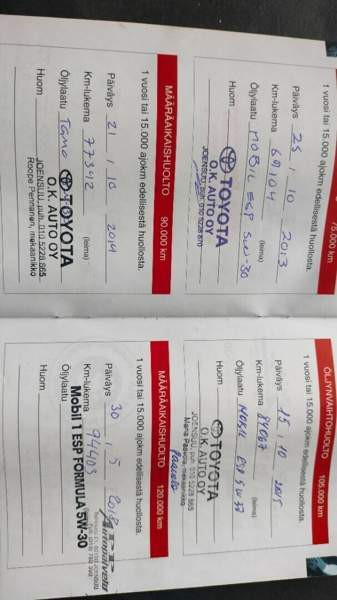 75.000 km
1 vuosi tai 15.000 ajokm edellisestä huollosta.
Päiväys 25 / 10 2013
Km-lukema 69104
(leima)
Öljylaatu MOBIL ESP 5W-30
TOYOTA
O.K. AUTO OY
JOENSUU, puh. 010 5228 670
Huom
MÄÄRÄAIKAISHUOLTO 90.000 km
1 vuosi tai 15.000 ajokm edellisestä huollosta.
Päiväys 21 / 10 2014
Km-lukema 77342
(leima)
Öljylaatu
TOYOTA
O.K. AUTO OY
JOENSUU, puh. 010 5228 665
Roope Pernanen, mekaanikko
Huom
ÖLJYNVAIHTOHUOLTO 105.000 km
1 vuosi tai 15.000 ajokm edellisestä huollosta.
Päiväys 15 / 10 2015
Km-lukema 84067
(leima)
Öljylaatu MOBIL ESP 5W30
TOYOTA
O.K. AUTO OY
JOENSUU, puh. 010 5228
Huom
MÄÄRÄAIKAISHUOLTO 120.000 km
1 vuosi tai 15.000 ajokm edellisestä huollosta.
Päiväys 30 / 5 2018
Km-lukema 94403
Öljylaatu
Mobil 1 ESP FORMULA 5W-30
Autopalvelu
Huom